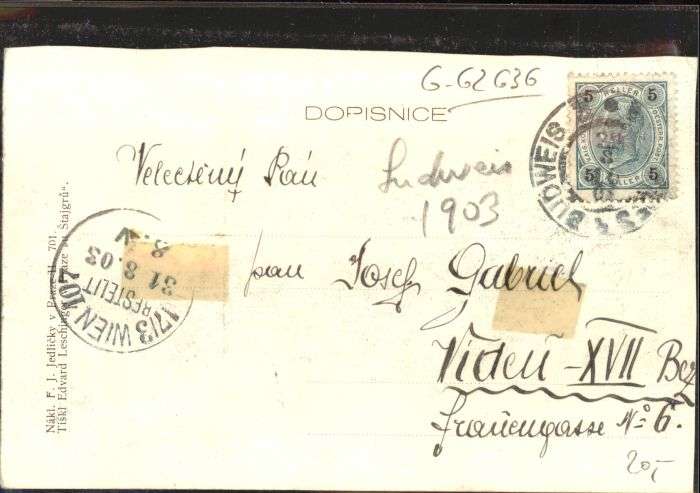 G-62636
DOPISNICE
5 HELLER 5
5 HELLER 5
BUDWEIS
Velectěný Pán
Budweis
1903
pan Josef Gabriel
Vídeň - XVII Bez
Frauengasse No 6.
20,-
17/3 WIEN 107
BESTELLT
31.8.03
8.V
Nákl. F. J. Jedličky v Praze II. 701.
Tiskl Edvard Leschinger, Praze „u Štajgrů“.